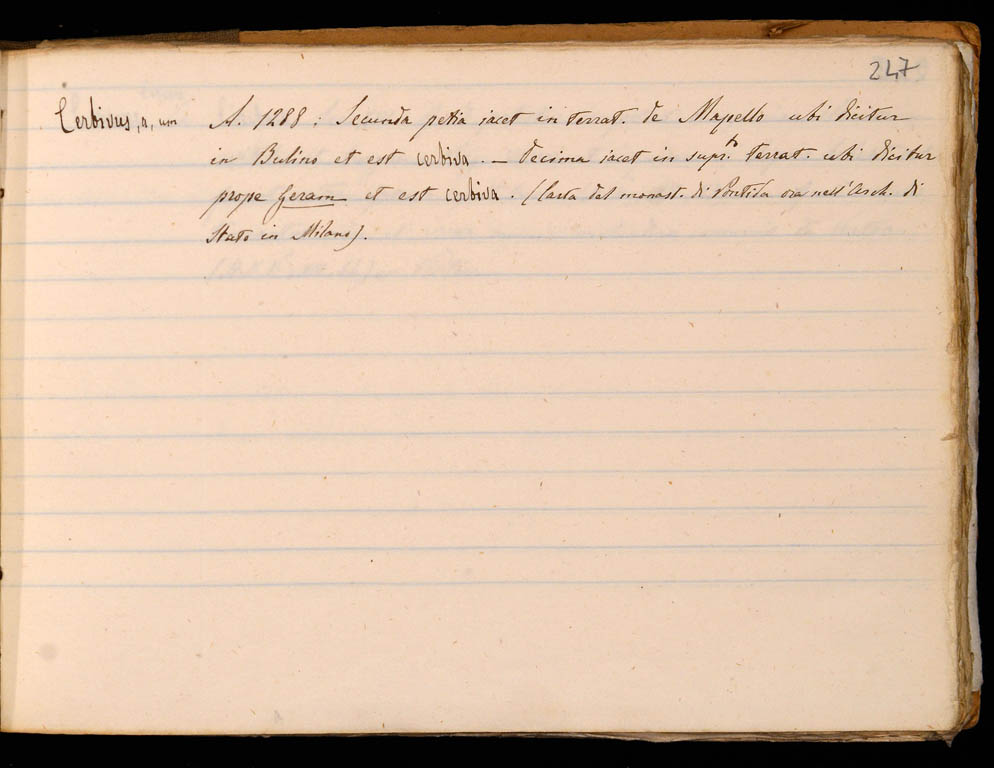 247
Cerbivus, a, um A. 1288 : Secunda petia iacet in terrat. de Mapello ubi dicitur
in Bulino et est cerbiva . — Decima iacet in supr.to terrat. ubi dicitur
prope Geram et est cerbiva . (Carta del monast. di Pontida ora nell'Arch. di
Stato in Milano).